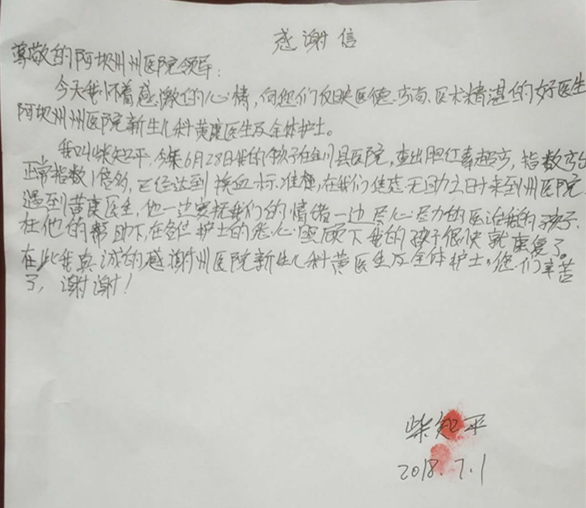 感谢信
尊敬的阿坝州州医院领导:
今天我怀着感激的心情,向您们反映医德高尚、医术精湛的好医生
阿坝州州医院新生儿科黄医生及全体护士。
我叫柴知平,今年6月28日我的孩子在金川县医院,查出胆红素超高,指数高出
正常指数1倍多,已经达到换血标准,在我们焦急无助之时来到州医院
遇到黄医生,他一边安抚我们的情绪一边尽心尽力的医治我的孩子.
在他的帮助下,在各位护士的悉心照顾下我的孩子很快就康复了。
在此我真诚的感谢州医院新生儿科黄医生及全体护士。您们辛苦
了,谢谢!
柴知平
2018.7.1